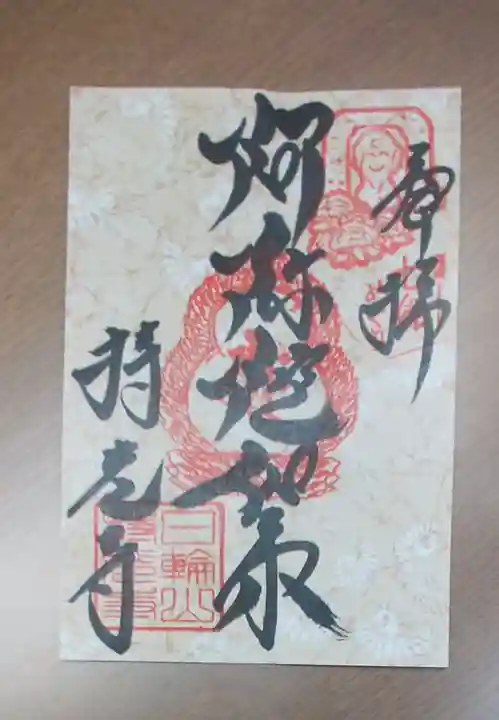 奉拝
阿弥陀如来
持光寺
日輪山